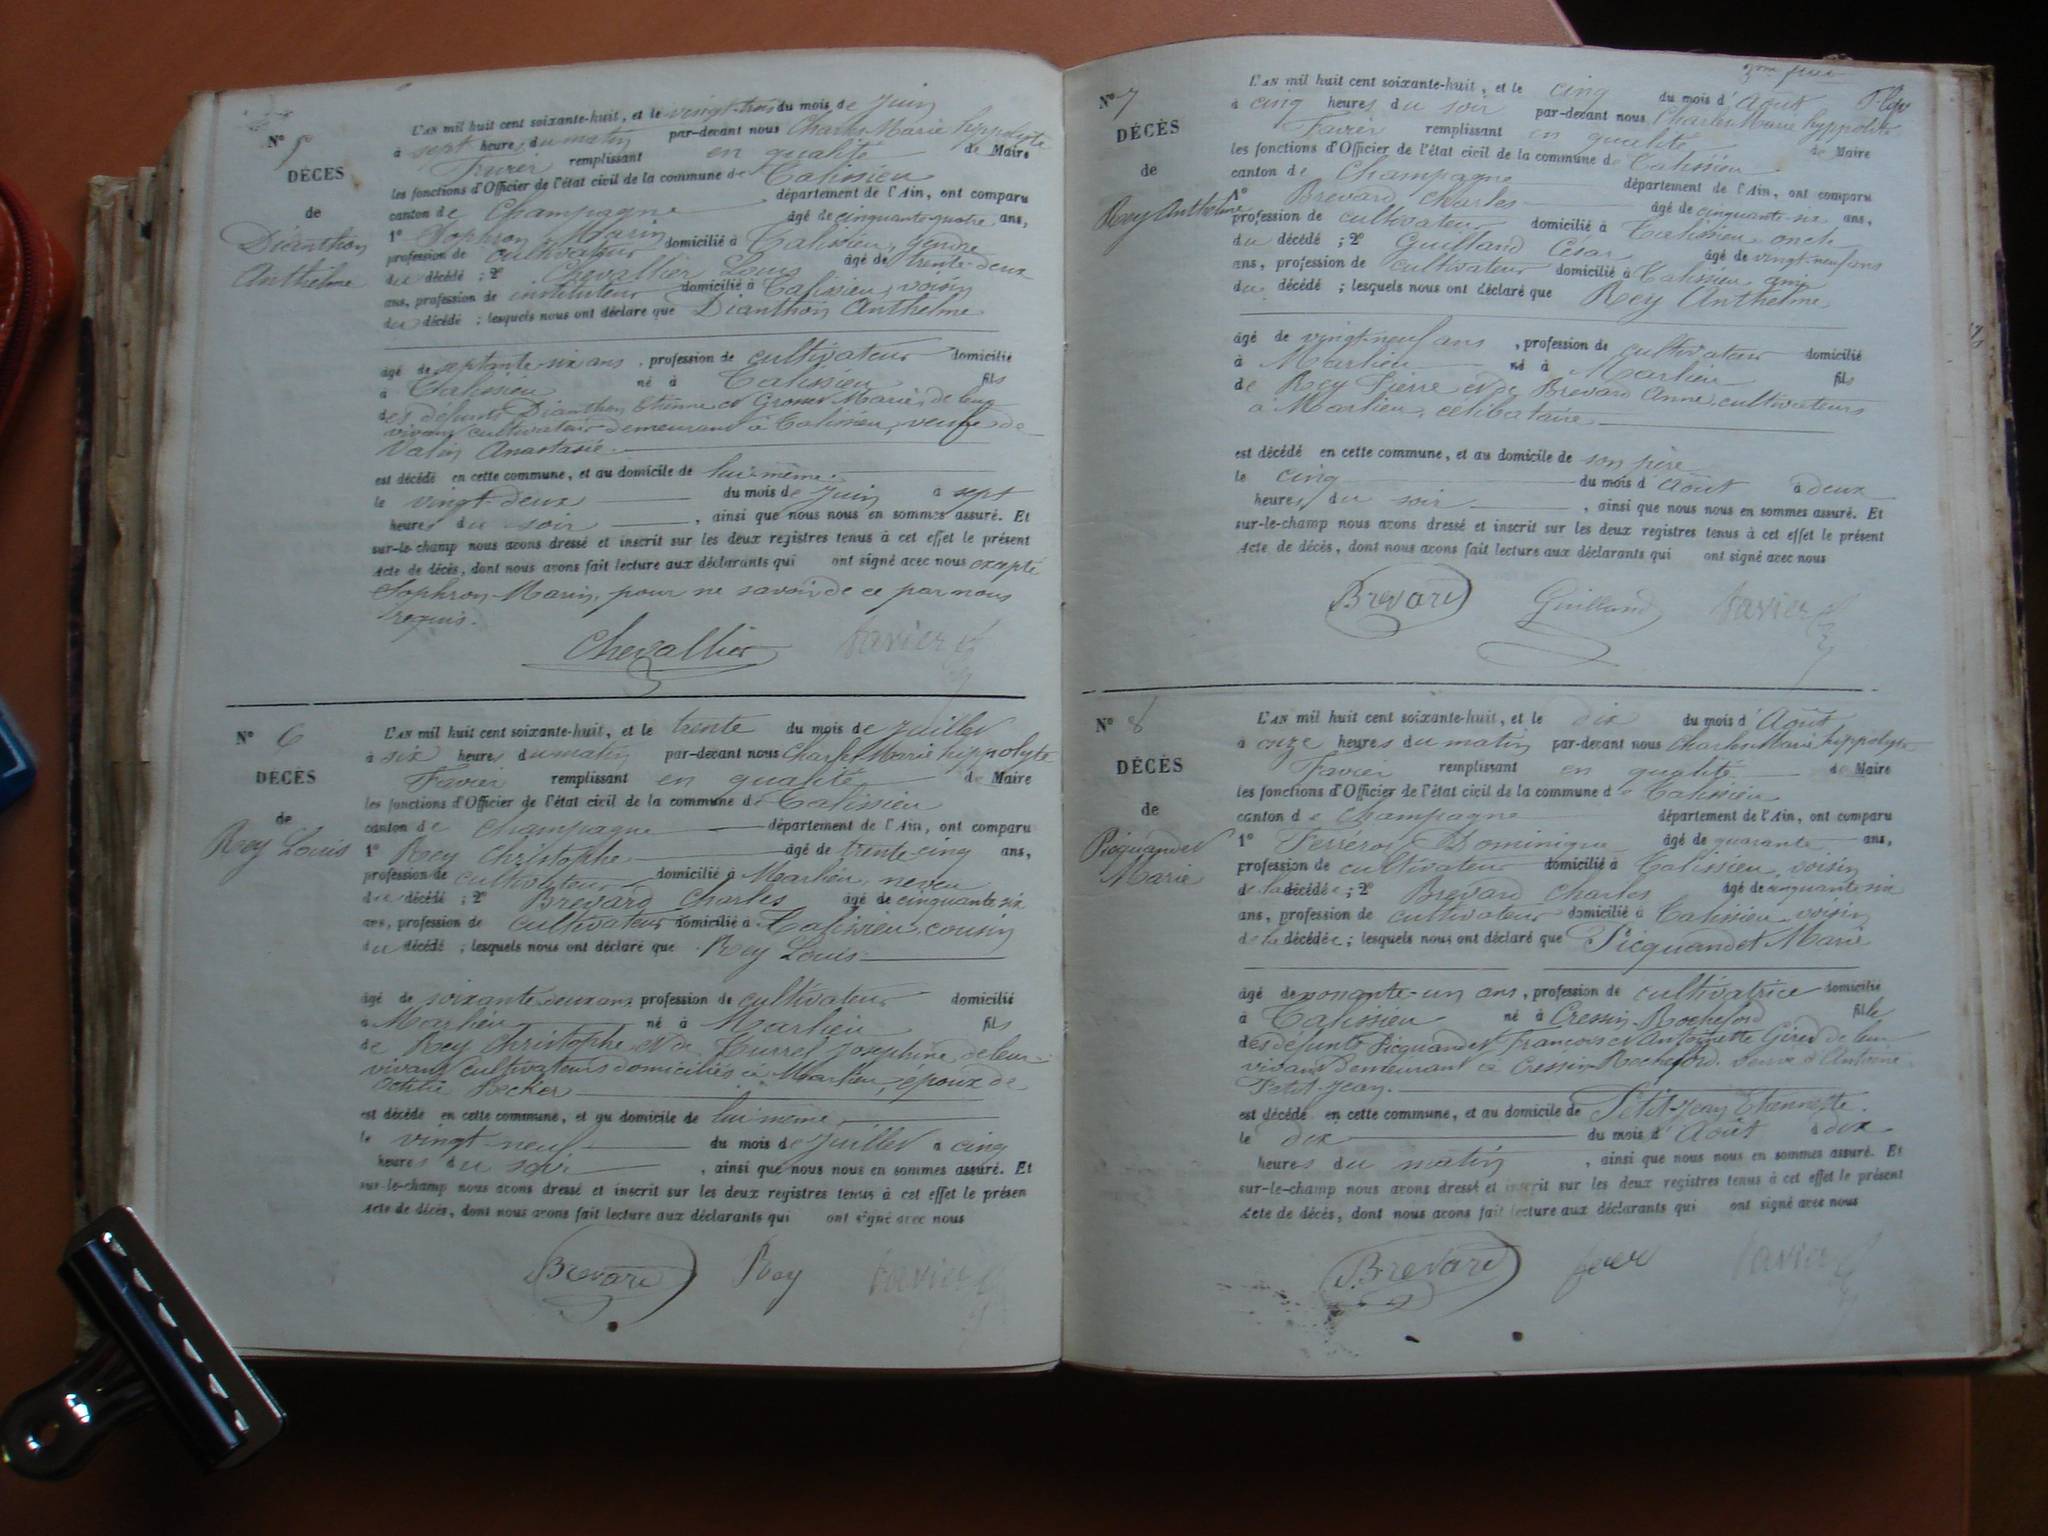 N° 5
DÉCÈS
de
Dianthon
Anthelme
L'AN mil huit cent soixante-huit, et le vingt-trois du mois de Juin
à sept heures du matin par-devant nous Charles Marie hippolyte
Favier remplissant en qualité de Maire
les fonctions d'Officier de l'état civil de la commune de Talissieu
canton de Champagne département de l'Ain, ont comparu
1° Sophron Marin âgé de cinquante-quatre ans,
profession de cultivateur domicilié à Talissieu, gendre
du décédé ; 2° Chevallier Louis âgé de trente-deux
ans, profession de instituteur domicilié à Talissieu, voisin
du décédé ; lesquels nous ont déclaré que Dianthon Anthelme
âgé de septante-six ans, profession de cultivateur domicilié
à Talissieu né à Talissieu fils
des défunts Dianthon Etienne et Grosset Marie, de leur
vivant cultivateurs demeurant à Talissieu, veuf de
Valin Anastasie.
est décédé en cette commune, et au domicile de lui-même.
le vingt-deux du mois de Juin à sept
heures du soir, ainsi que nous nous en sommes assuré. Et
sur-le-champ nous avons dressé et inscrit sur les deux registres tenus à cet effet le présent
Acte de décès, dont nous avons fait lecture aux déclarants qui ont signé avec nous excepté
Sophron Marin, pour ne savoir de ce par nous
requis.
Chevallier Favier
N° 6
DÉCÈS
de
Rey Louis
L'AN mil huit cent soixante-huit, et le trente du mois de Juillet
à six heures du matin par-devant nous Charles Marie hippolyte
Favier remplissant en qualité de Maire
les fonctions d'Officier de l'état civil de la commune de Talissieu
canton de Champagne département de l'Ain, ont comparu
1° Rey Christophe âgé de trente-cinq ans,
profession de cultivateur domicilié à Marlieu, neveu
du décédé ; 2° Brevard Charles âgé de cinquante six
ans, profession de cultivateur domicilié à Talissieu, cousin
du décédé ; lesquels nous ont déclaré que Rey Louis
âgé de soixante-deux ans profession de cultivateur domicilié
à Marlieu né à Marlieu fils
de Rey Christophe et de Turrel Josephine de leur
vivant cultivateurs domiciliés à Marlieu, époux de
Becker
est décédé en cette commune, et au domicile de lui-même
le vingt-neuf du mois de Juillet à cinq
heures du soir, ainsi que nous nous en sommes assuré. Et
sur-le-champ nous avons dressé et inscrit sur les deux registres tenus à cet effet le présen
Acte de décès, dont nous avons fait lecture aux déclarants qui ont signé avec nous
Brevard Rey Favier
N° 7
DÉCÈS
de
Rey Anthelme
L'AN mil huit cent soixante-huit, et le cinq du mois d'Août
à cinq heures du soir par-devant nous Charles Marie hyppolite
Favier remplissant en qualité de Maire
les fonctions d'Officier de l'état civil de la commune de Talissieu
canton de Champagne département de l'Ain, ont comparu
1° Brevard Charles âgé de cinquante-six ans,
profession de cultivateur domicilié à Talissieu oncle
du décédé ; 2° Guilland César âgé de vingt-neuf ans
ans, profession de cultivateur domicilié à Talissieu, ami
du décédé ; lesquels nous ont déclaré que Rey Anthelme
âgé de vingt-neuf ans, profession de cultivateur domicilié
à Marlieu né à Marlieu fils
de Rey Pierre et de Brevard Anne, cultivateurs
à Marlieu, célibataire
est décédé en cette commune, et au domicile de son père
le cinq du mois d'Août à deux
heures du soir, ainsi que nous nous en sommes assuré. Et
sur-le-champ nous avons dressé et inscrit sur les deux registres tenus à cet effet le présent
Acte de décès, dont nous avons fait lecture aux déclarants qui ont signé avec nous
Brevard Guilland Favier
N° 8
DÉCÈS
de
Picquandet
Marie
L'AN mil huit cent soixante-huit, et le dix du mois d'Août
à onze heures du matin par-devant nous Charles Marie hippolyte
Favier remplissant en qualité de Maire
les fonctions d'Officier de l'état civil de la commune de Talissieu
canton de Champagne département de l'Ain, ont comparu
1° Dominique âgé de quarante ans,
profession de cultivateur domicilié à Talissieu, voisin
de la décédée ; 2° Brevard Charles âgé de cinquante six
ans, profession de cultivateur domicilié à Talissieu, voisin
de la décédée ; lesquels nous ont déclaré que Picquandet Marie
âgé de nonante-un ans, profession de cultivatrice domicilié
à Talissieu né à Cressin-Rocheford fille
des défunts Picquandet François et Antoinette Girod de leur
vivant demeurant à Cressin-Rocheford. veuve d'Antoine
Petit-Jean.
est décédé en cette commune, et au domicile de Petit-Jean Etiennette.
le dix du mois d'Août à dix
heures du matin, ainsi que nous nous en sommes assuré. Et
sur-le-champ nous avons dressé et inscrit sur les deux registres tenus à cet effet le présent
Acte de décès, dont nous avons fait lecture aux déclarants qui ont signé avec nous
Brevard Favier